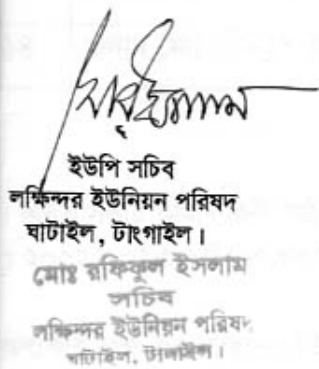 ইউপি সচিব
লক্ষিন্দর ইউনিয়ন পরিষদ
ঘাটাইল, টাংগাইল।
মোঃ রফিকুল ইসলাম
সচিব
লক্ষিন্দর ইউনিয়ন পরিষদ
ঘাটাইল, টাঙ্গাইল।